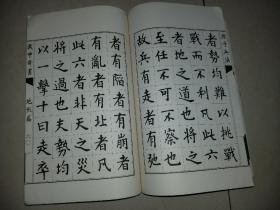 孫子兵法
者勢均難以挑戰
戰而不利凡此六
者地之道也將之
至任不可不察也
故兵有走者有弛
者有陷者有崩者
有亂者有北者凡
此六者非天之災
將之過也夫勢均
以一擊十曰走卒
地形篇